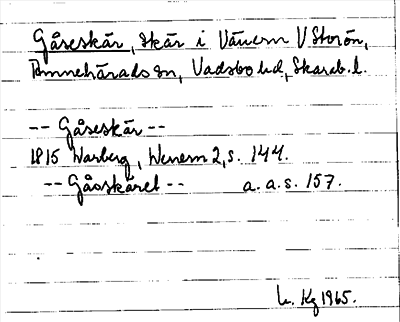 Gåseskär, skär i Vänern V Storön,
Amnehärads sn, Vadsbo hd, Skarab. l.
-- Gåseskär --
1815 Warberg, Wenern 2, s. 144.
-- Gåsskäret -- a. a. s. 157.
Kg 1965.